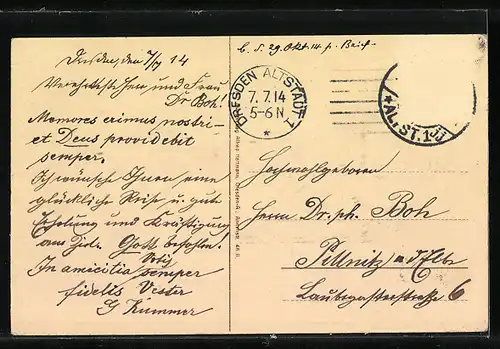 Dresden, den 7/7 14
b. d. 29. Okt. 14 p. Brief.
Verehrtester Herr und Frau
Dr. Boh!
Memores erimus nostri
et Deus providebit
semper.
Ich wünsche Ihnen eine
glückliche Reise u. gute
Erholung und Kräftigung
am Ziele. Gott befohlen!
In amicitia semper
fidelis Vester
G Kummer
DRESDEN ALTSTADT 1
7.7.14
5-6 N
*
Hochwohlgeboren
Herrn Dr. ph. Boh
Pillnitz a. d Elbe
Laubegasterstraße 6